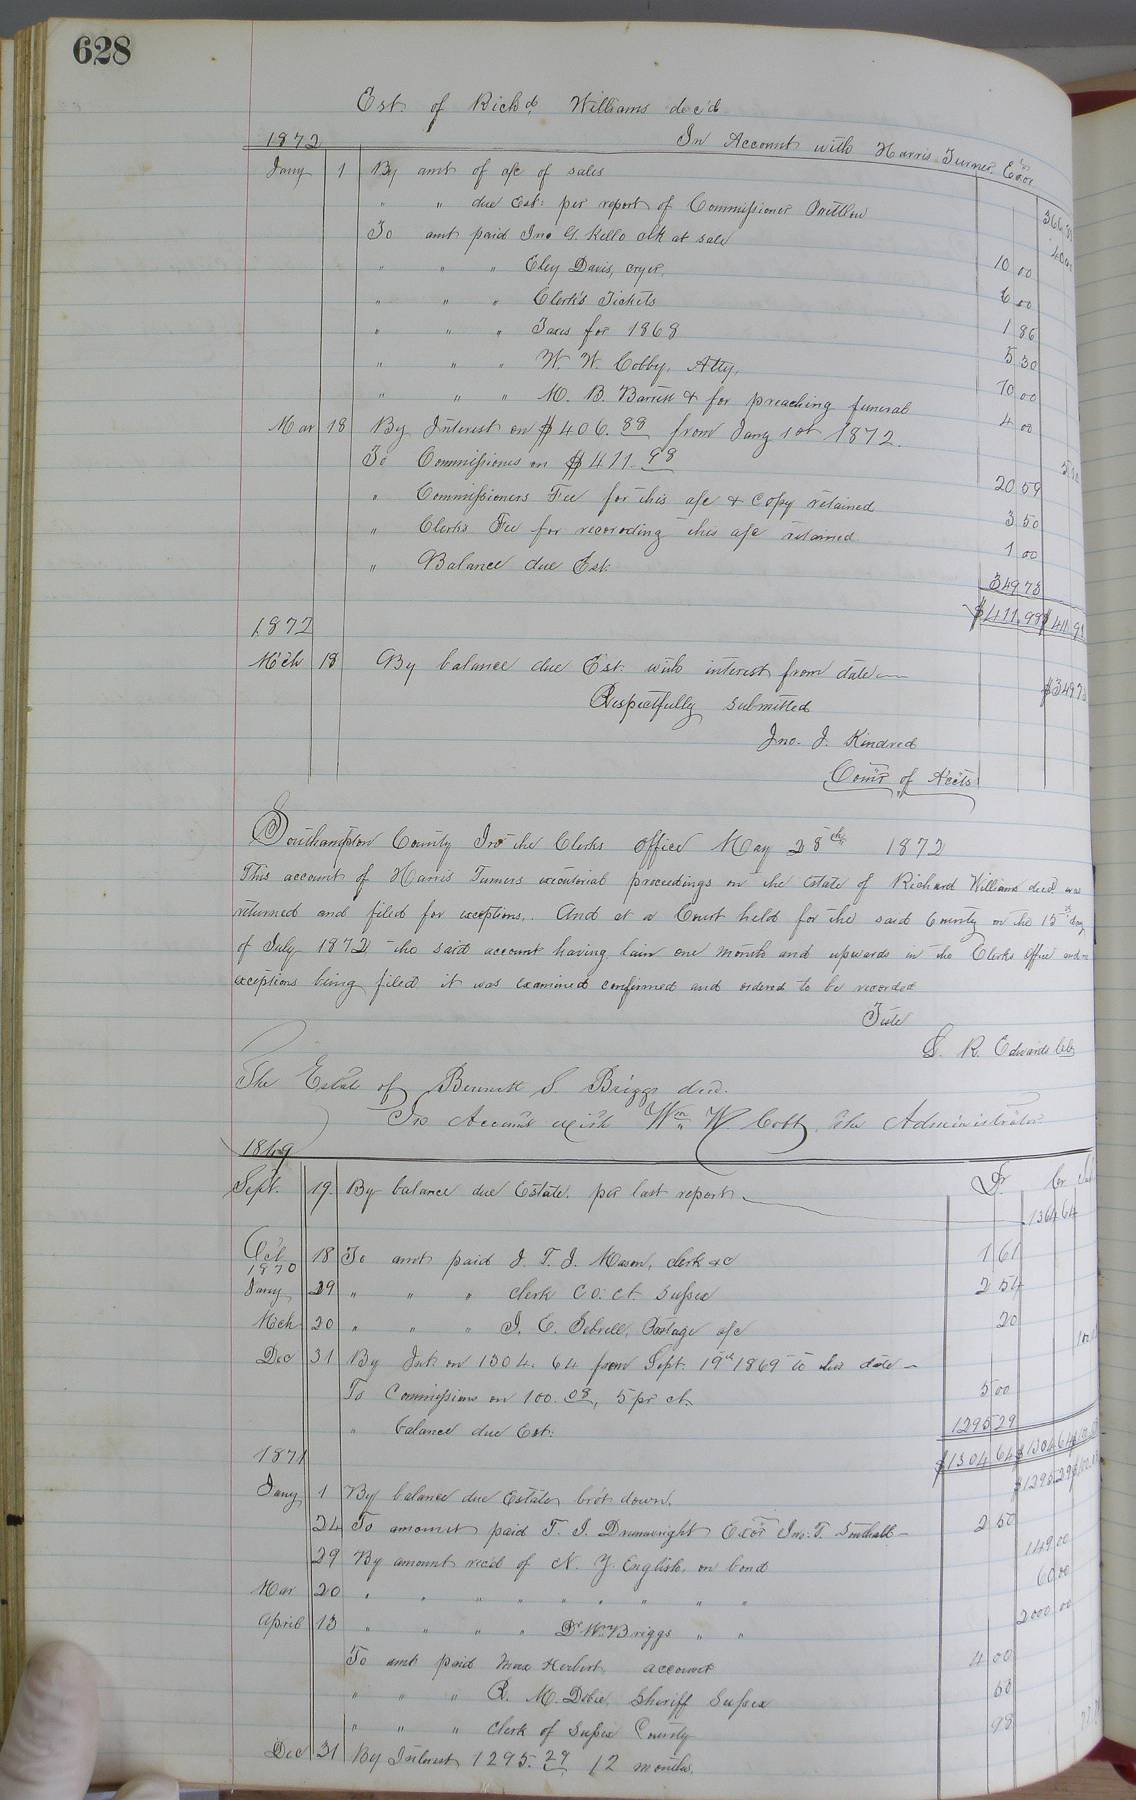 628
Est. of Richd. Williams dec'd
In Account with Harris Turner Exor
1872
Jany 1 By amt of a/c of sales 366.88
" " due Est. per report of Commissioner Pretlow 40 00
To amt paid Jno G. Kello clk at sale 10 00
" " " Eley Davis, cryer, 6 00
" " " Clerk's Tickets 1 86
" " " Taxes for 1868 5 30
" " " W. W. Cobby, Atty, 10 00
" " " M. B. Barrett & for preaching funeral 4 00
Mar 18 By Interest on $406.88 from Jany 1st 1872.
To Commissions on $411.98 20 59
" Commissioners Fee for this a/c & copy retained 3 50
" Clerks Fee for recording this a/c retained 1 00
" Balance due Est. 349 73
$411.98 $411.98
1872
Mch 18 By balance due Est. with interest from date $349 73
Respectfully submitted
Jno. J. Kindred
Comr of Accts
Southampton County In the Clerks office May 28th 1872
This account of Harris Turners executorial proceedings on the Estate of Richard Williams decd. was
returned and filed for exceptions. And at a Court held for the said County on the 15th day
of July 1872 the said account having lain one month and upwards in the Clerks Office and no
exceptions being filed it was examined confirmed and ordered to be recorded
Teste
L. R. Edwards Clk
The Estate of Bennett S. Briggs decd.
In Account with Wm W. Cobb, Administrator
1869 Dr Cr Int.
Sept. 19 By balance due Estate per last report 1304 64
Oct 18 To amt paid J. T. J. Mason, clerk &c 1 61
1870
Jany 29 " " " clerk Co. Ct. Sussex 2 54
Mch 20 " " " J. E. Sebrell, Postage a/c 20
Dec 31 By Int. on 1304.64 from Sept. 19th 1869 to this date
To Commissions on 100.08, 5 pr ct. 5 00
" balance due Est. 1295 29
$1304 64 $1304 64
1871
Jany 1 By balance due Estate bro't down. $1295.29
24 To amount paid T. J. Drumwright Exor Jno. T. Southall 2 50
29 By amount rec'd of N. Y. English, on bond 149 00
Mar 20 " " " " " " " " " 60 00
April 13 " " " " Dr Wm Briggs " " 2000 00
To amt paid Max Herbert account 4 00
" " " R. M. Dobie, Sheriff Sussex 60
" " " Clerk of Sussex County 98
Dec 31 By Interest 1295.29 12 months.